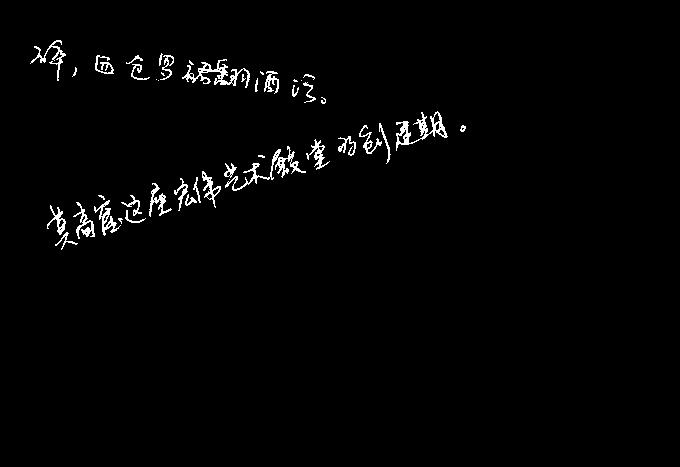 碎，血色罗裙翻酒污。
莫高窟这座宏伟艺术殿堂的创建期。